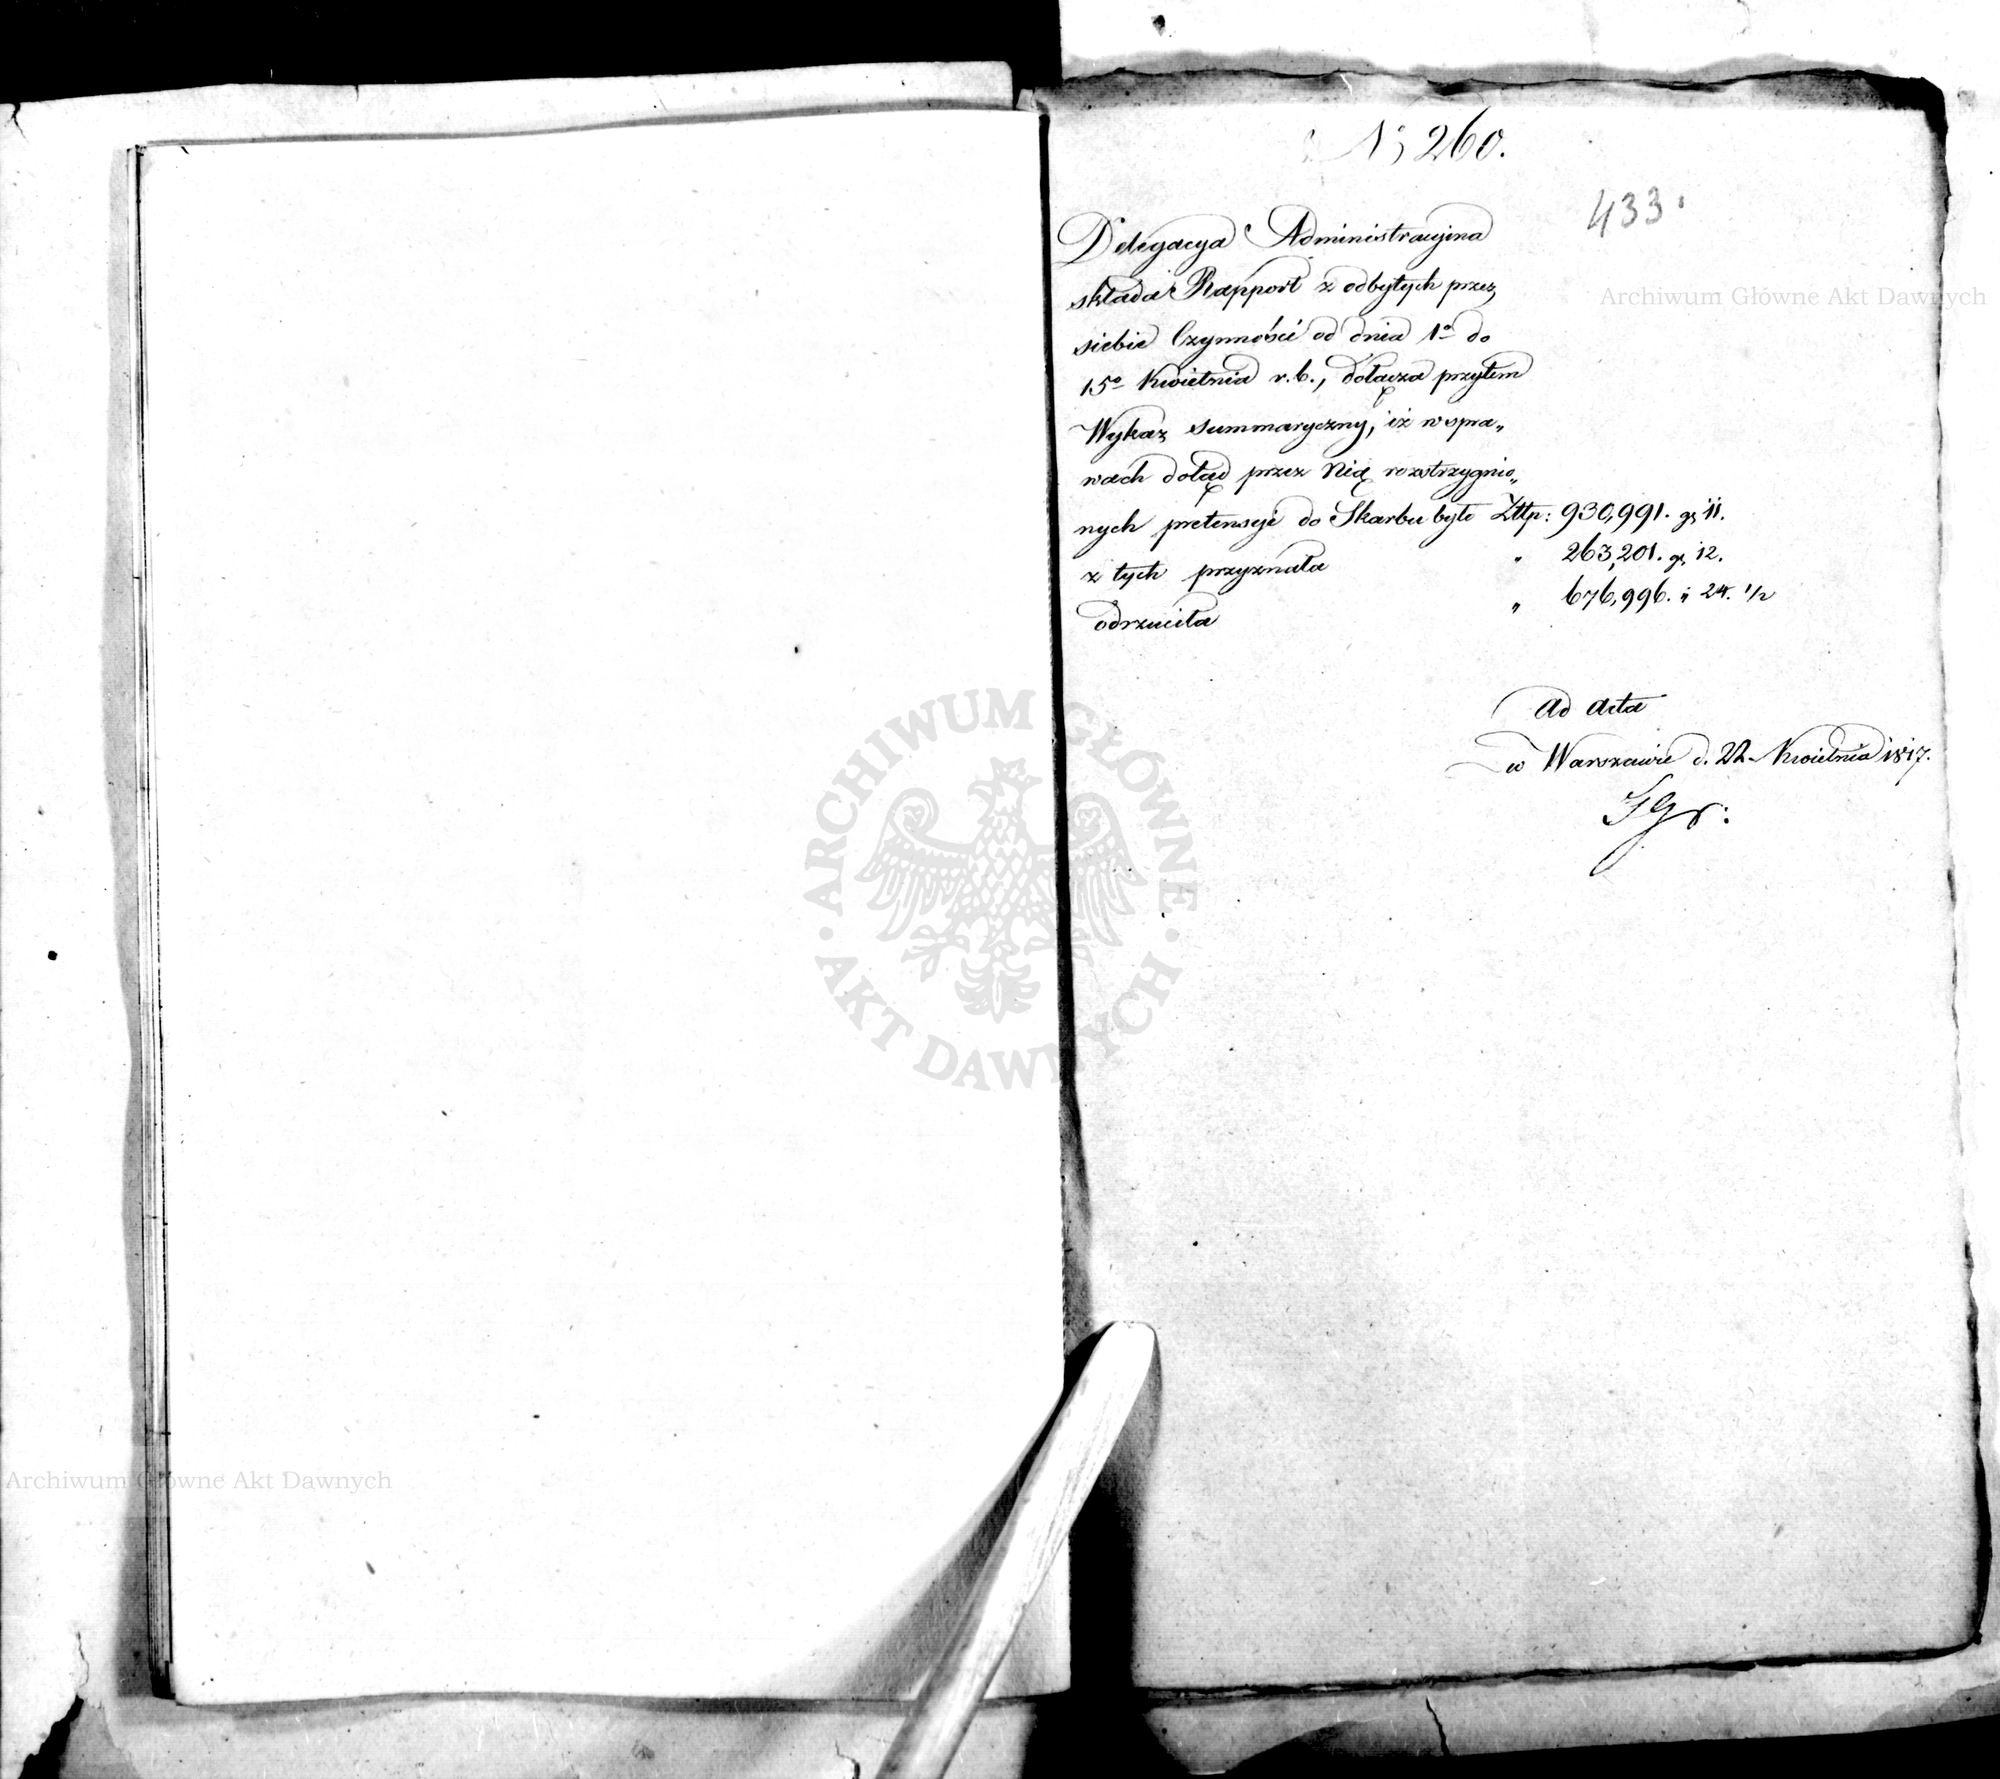 No 260.
433.
Delegacya Administracyina
składa Rapport z odbytych przez
siebie Czynności od dnia 1o do
15o Kwietnia r. b., dołącza przytem
Wykaz summaryczny, iż w spra„
wach dotąd przez Nię rozstrzygnio„
nych pretensyi do Skarbu było Złtp: 930,991. gr 11.
z tych przyznała „ 263,201. gr 12.
odrzuciła „ 676,996. „ 24. 1/2
Ad Acta
w Warszawie d. 22 Kwietnia 1817.
Archiwum Główne Akt Dawnych
ARCHIWUM GŁÓWNE · AKT DAWNYCH ·
Archiwum Główne Akt Dawnych